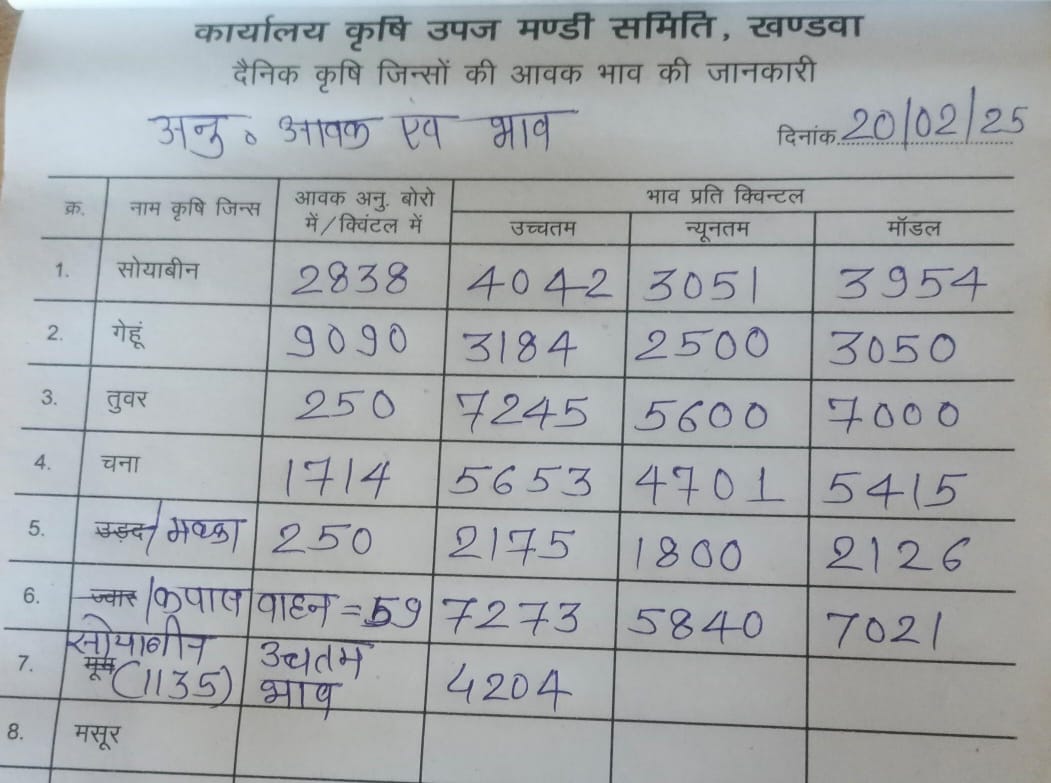 कार्यालय कृषि उपज मण्डी समिति, खण्डवा
दैनिक कृषि जिन्सों की आवक भाव की जानकारी
अनु. आवक एव भाव दिनांक 20/02/25
क्र. नाम कृषि जिन्स आवक अनु. बोरो में/क्विंटल में भाव प्रति क्विन्टल
उच्चतम न्यूनतम मॉडल
1. सोयाबीन 2838 4042 3051 3954
2. गेहूं 9090 3184 2500 3050
3. तुवर 250 7245 5600 7000
4. चना 1714 5653 4701 5415
5. उड़द/मक्का 250 2175 1800 2126
6. ज्वार/कपास वाहन = 59 7273 5840 7021
7. सोयाबीन मूंग (1135) उचतम भाव 4204
8. मसूर